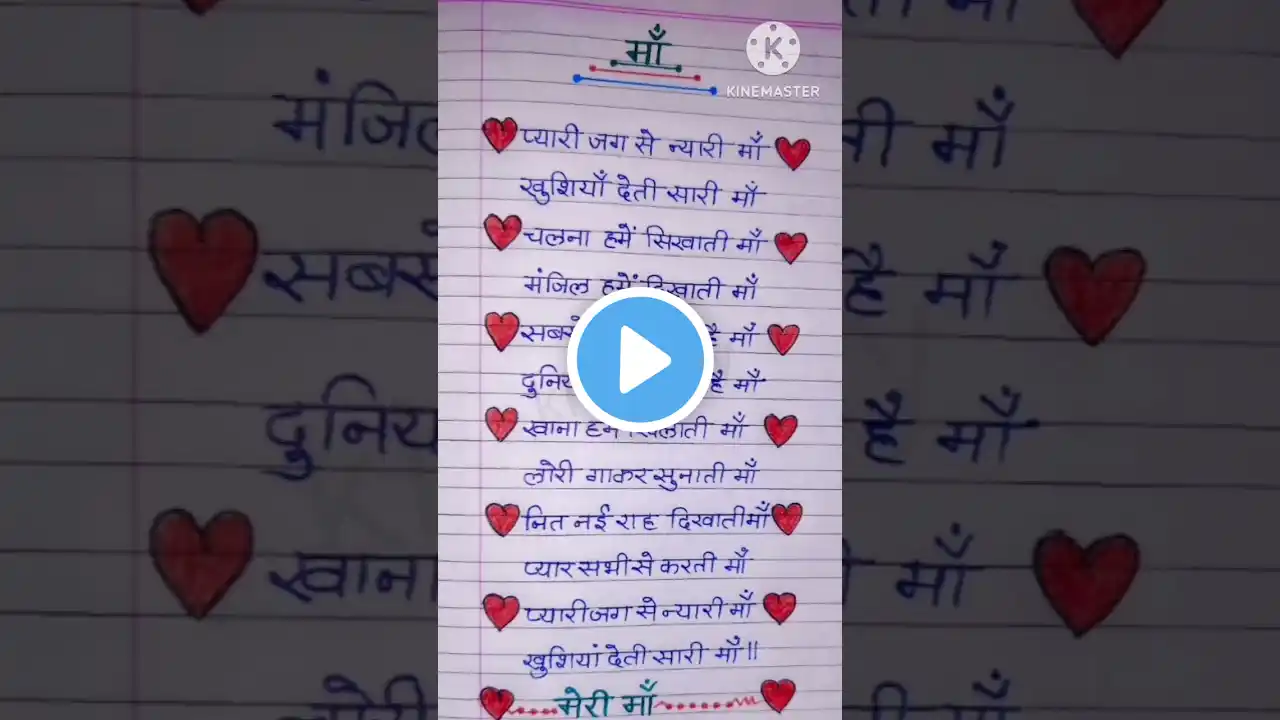 माँ
KINEMASTER
प्यारी जग से न्यारी माँ
खुशियाँ देती सारी माँ
चलना हमें सिखाती माँ
मंजिल हमें दिखाती माँ
है माँ
है माँ
खाना हमें खिलाती माँ
लोरी गाकर सुनाती माँ
नित नई राह दिखाती माँ
प्यार सभी से करती माँ
प्यारी जग से न्यारी माँ
खुशियां देती सारी माँ ||
मेरी माँ